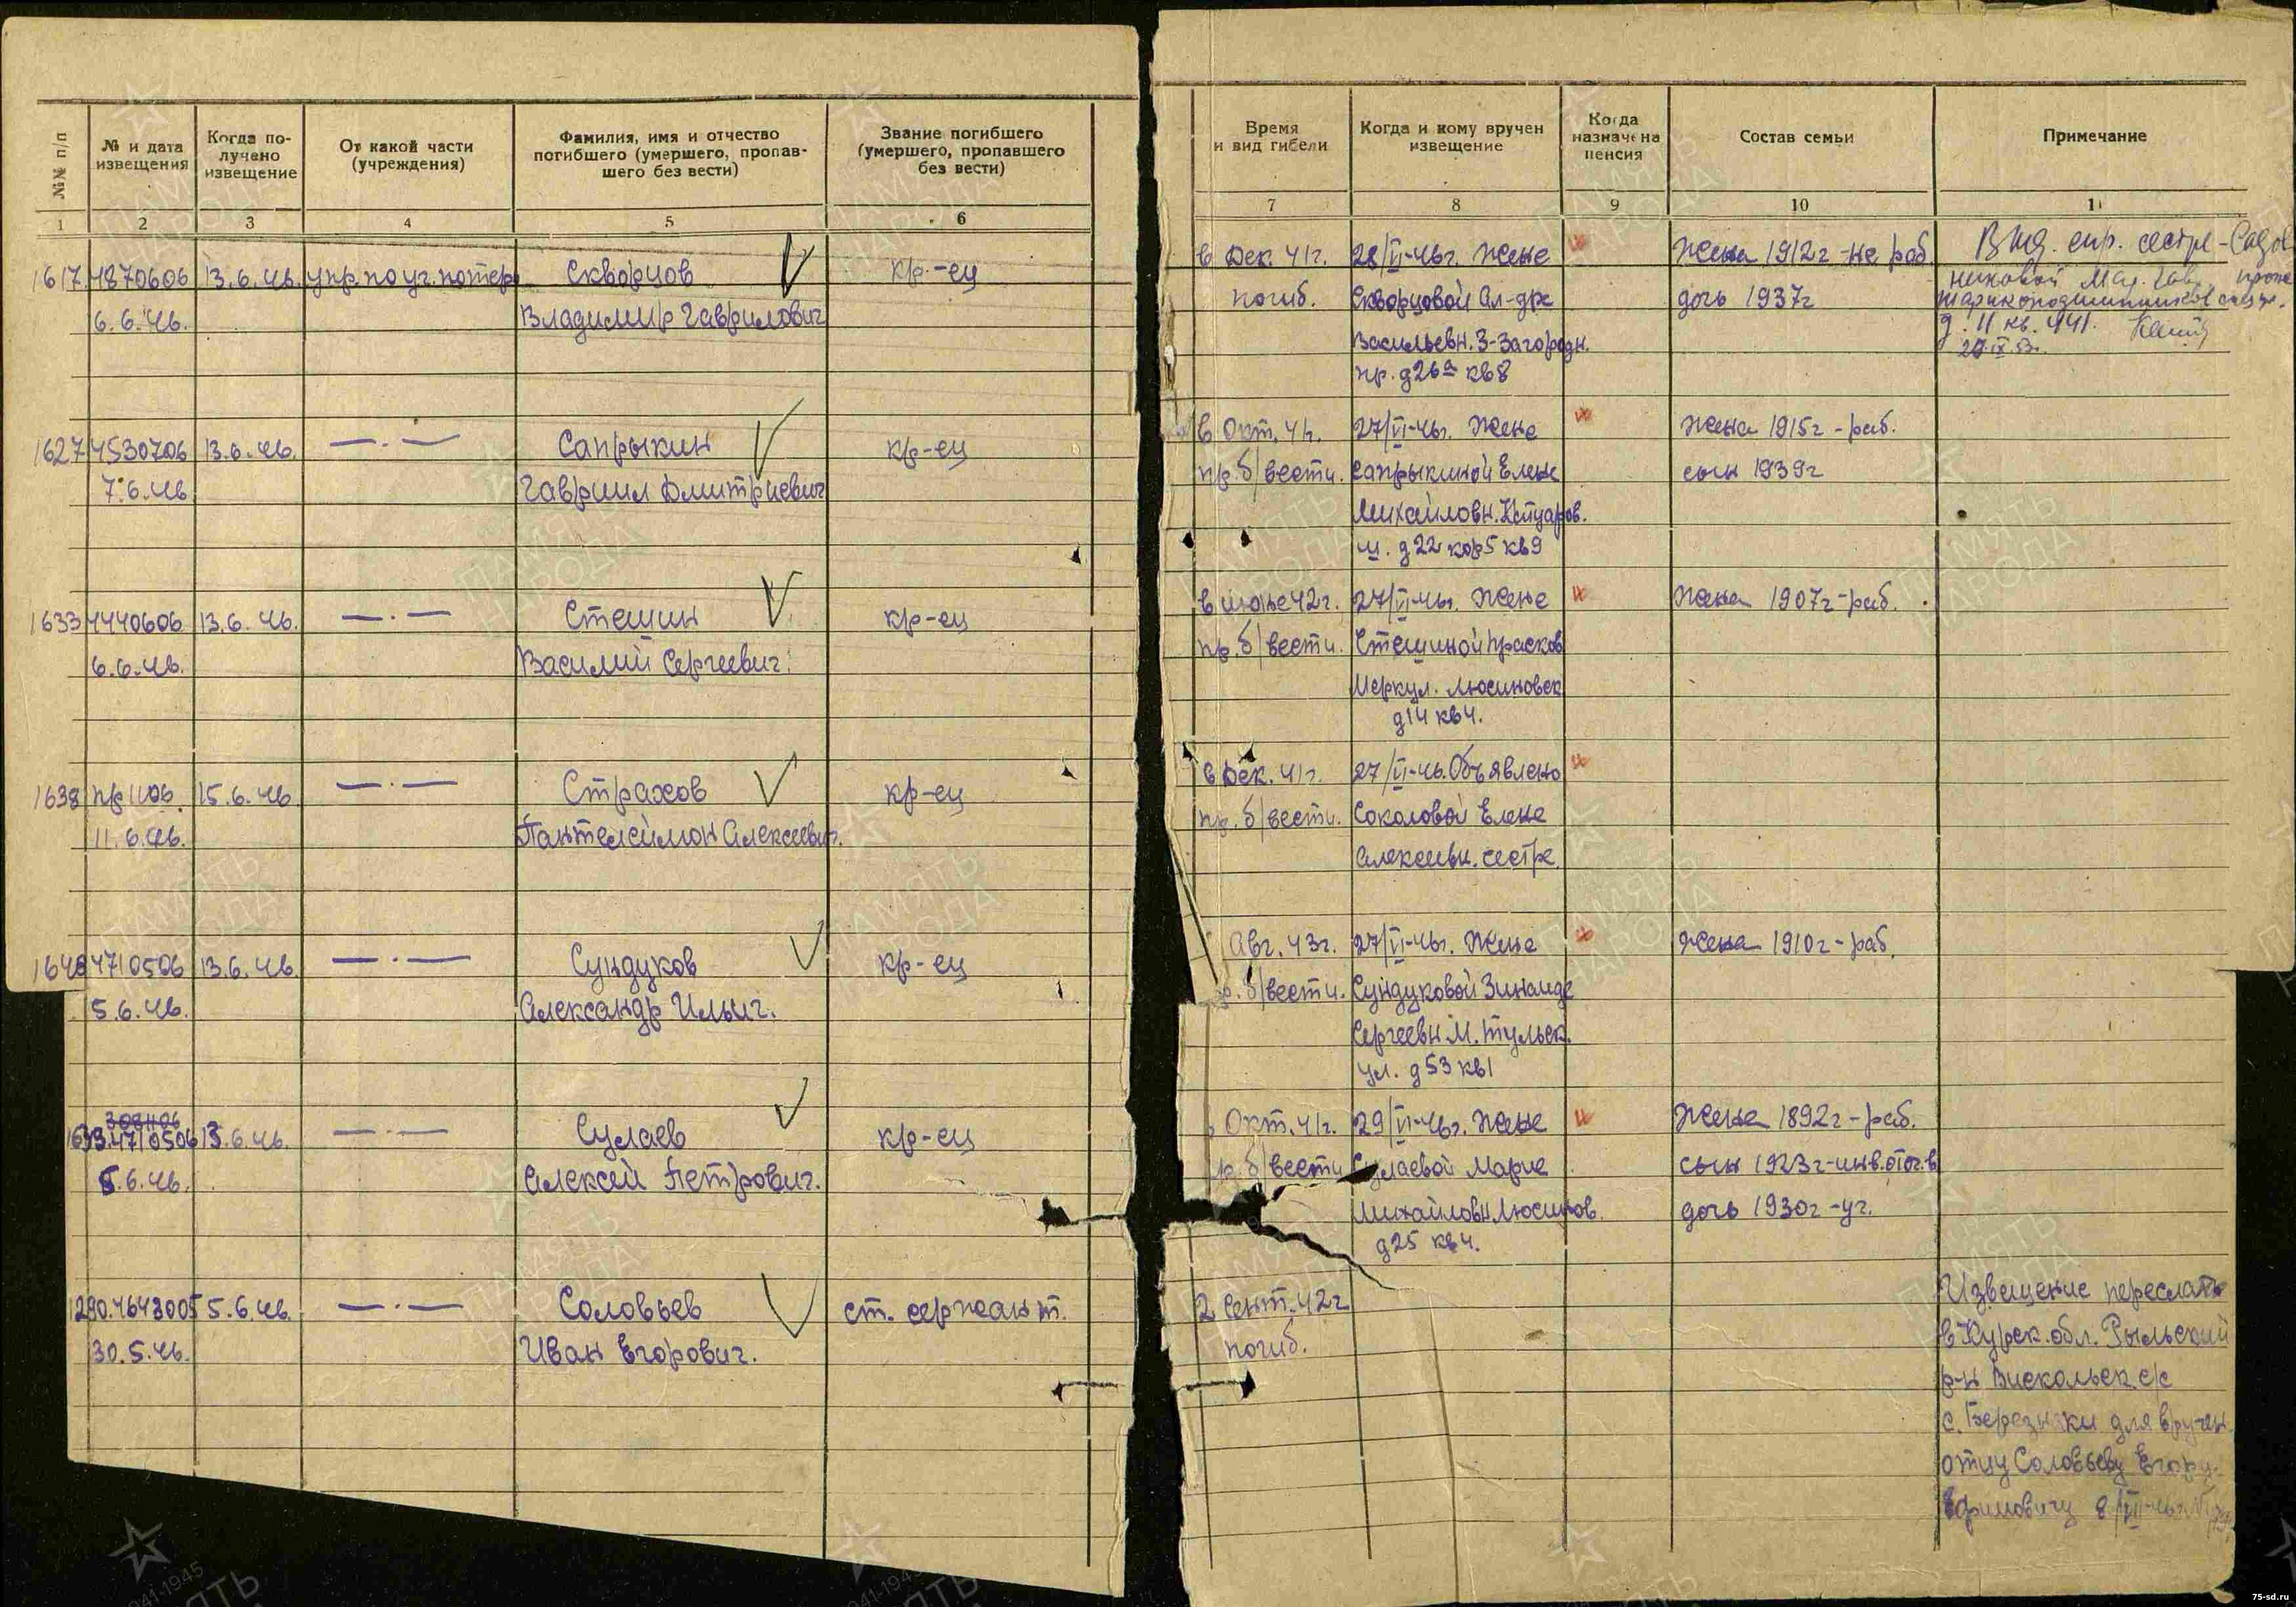 №№ п/п
№ и дата извещения
Когда по-
лучено
извещение
От какой части
(учреждения)
Фамилия, имя и отчество
погибшего (умершего, пропав-
шего без вести)
Звание погибшего
(умершего, пропавшего
без вести)
Время
и вид гибели
Когда и кому вручен
извещение
Когда
назначена
пенсия
Состав семьи
Примечание
1 2 3 4 5 6 7 8 9 10 11
1617 4870606 13.6.46. упр. по уч. потерь Скворцов кр.-ец
6.6.46. Владимир Гаврилович
в Дек. 41г. 28/VI-46г. Жене Жена 1912г - не раб.
погиб. Скворцовой Ал-дре дочь 1937г
Васильевн. 3-Загородн.
пр. д26а кв8
Выд. спр. сестре - Садов
никовой
д. 11 кв. 441.
1627 4530706 13.6.46. — . — Сапрыкин кр-ец
7.6.46 Гавриил Дмитриевич
в Окт. 41г. 27/VI-46г. Жене Жена 1915г - раб.
пр. б/вести. Сапрыкиной Елене сын 1939г
Михайловн.
ш. д22 кор5 кв9
1633 4440606 13.6.46. — . — Стешин кр-ец
6.6.46. Василий Сергеевич.
в июне 42г. 27/VI-46г. Жене Жена 1907г - раб.
пр. б/вести. Стешиной Прасков
Меркул. Люсиновск
д14 кв4.
1638 пр1106. 15.6.46 — . — Страхов кр-ец
11.6.46. Пантелеймон Алексеевич.
в Дек. 41г. 27/VI-46. Объявлено
пр. б/вести. Соколовой Елене
Алексеевн. сестре.
4710506 13.6.46. — . — Сундуков кр-ец
5.6.46. Александр Ильич.
Авг. 43г. 27/VI-46г. Жене Жена 1910г - раб.
р. б/вести. Сундуковой Зинаиде
Сергеевн М. Тульск.
ул. д53 кв1
4710506 13.6.46. — . — Сулаев кр-ец
5.6.46. Алексей Петрович.
Окт. 41г. 29/VI-46г. Жене Жена 1892г - раб.
р. б/вести Сулаевой Марие сын 1923г - инв. отеч. в
Михайловн Люсинов. дочь 1930г - уч.
д25 кв4.
1290. 4643005 5.6.46. — . — Соловьев ст. сержант.
30.5.46. Иван Егорович.
2 Сент. 42г
погиб.
Извещение переслать
в Курск. обл. Рыльский
р-н Вискольск. с/с
с. Березники для вручен.
отцу Соловьеву Егору
Ефимовичу
ПАМЯТЬ
НАРОДА
1941-1945
75-sd.ru